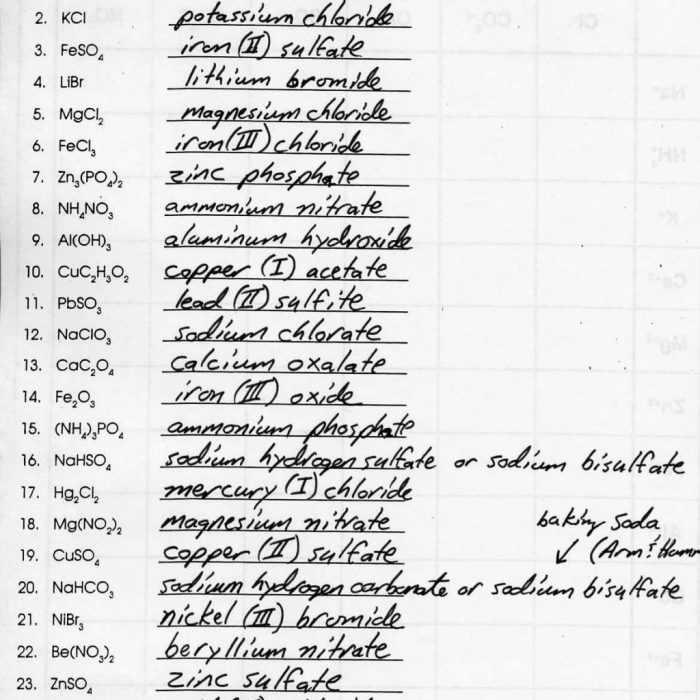 2. KCl potassium chloride
3. FeSO₄ iron (II) sulfate
4. LiBr lithium bromide
5. MgCl₂ magnesium chloride
6. FeCl₃ iron (III) chloride
7. Zn₃(PO₄)₂ zinc phosphate
8. NH₄NO₃ ammonium nitrate
9. Al(OH)₃ aluminum hydroxide
10. CuC₂H₃O₂ copper (I) acetate
11. PbSO₃ lead (II) sulfite
12. NaClO₃ sodium chlorate
13. CaC₂O₄ calcium oxalate
14. Fe₂O₃ iron (III) oxide
15. (NH₄)₃PO₄ ammonium phosphate
16. NaHSO₄ sodium hydrogen sulfate or sodium bisulfate
17. Hg₂Cl₂ mercury (I) chloride
18. Mg(NO₂)₂ magnesium nitrate baking soda
19. CuSO₄ copper (II) sulfate ↙ (Arm &
20. NaHCO₃ sodium hydrogen carbonate or sodium bisulfate
21. NiBr₃ nickel (III) bromide
22. Be(NO₃)₂ beryllium nitrate
23. ZnSO₄ zinc sulfate